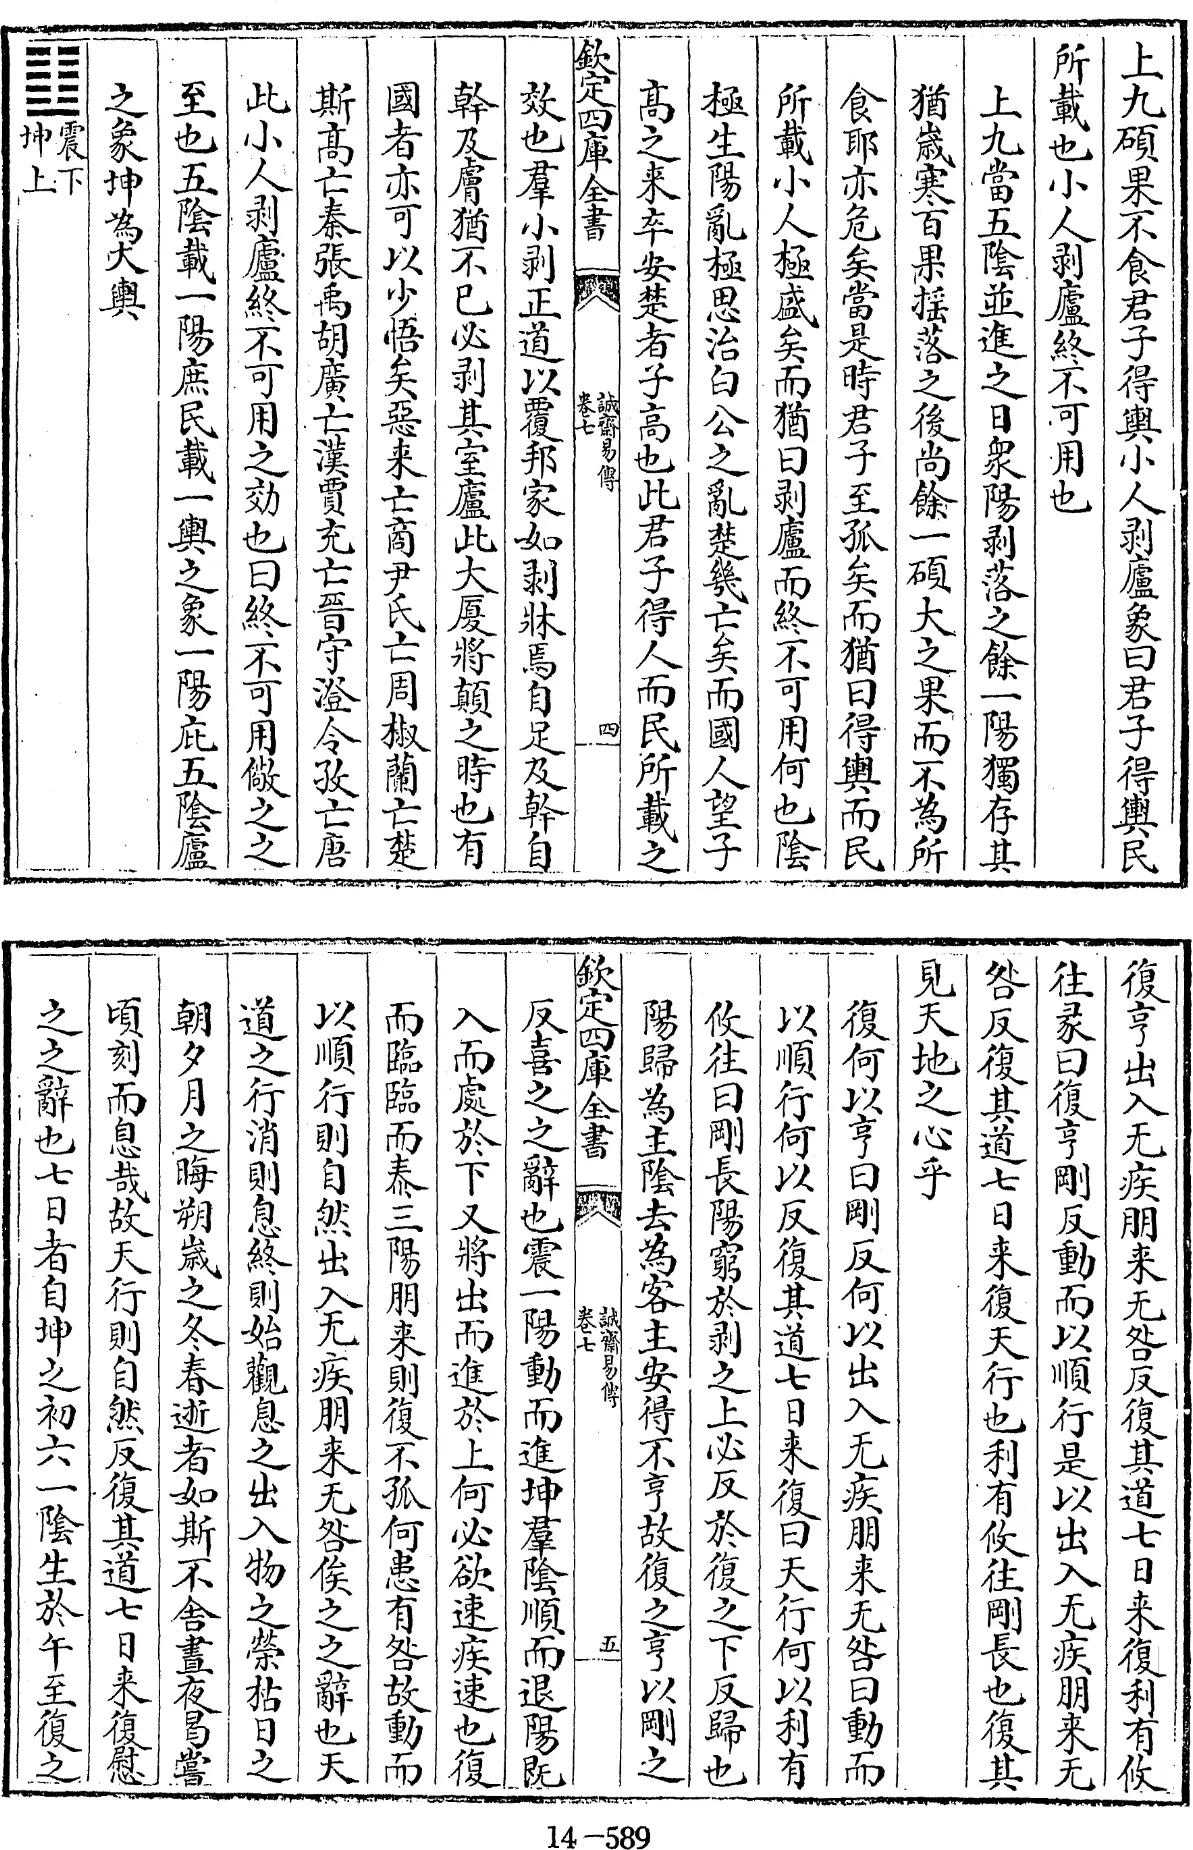 上九碩果不食君子得輿小人剥廬象曰君子得輿民
所載也小人剥廬終不可用也
上九當五陰並進之日衆陽剥落之餘一陽獨存其
猶歳寒百果摇落之後尚餘一碩大之果而不為所
食耶亦危矣當是時君子至孤矣而猶曰得輿而民
所載小人極盛矣而猶曰剥廬而終不可用何也陰
極生陽亂極思治白公之亂楚幾亡矣而國人望子
髙之来卒安楚者子高也此君子得人而民所載之
欽定四庫全書
誠齋易傳
卷七
四
效也羣小剥正道以覆邦家如剥牀焉自足及幹自
幹及膚猶不已必剥其室廬此大厦將顛之時也有
國者亦可以少悟矣惡来亡商尹氏亡周椒蘭亡楚
斯髙亡秦張禹胡廣亡漢賈充亡晉守澄令孜亡唐
此小人剥廬終不可用之効也曰終不可用儆之之
至也五陰載一陽庶民載一輿之象一陽庇五陰廬
之象坤為大輿
䷗
震下
坤上
復亨出入无疾朋来无咎反復其道七日来復利有攸
往彖曰復亨剛反動而以順行是以出入无疾朋来无
咎反復其道七日来復天行也利有攸往剛長也復其
見天地之心乎
復何以亨曰剛反何以出入无疾朋来无咎曰動而
以順行何以反復其道七日来復曰天行何以利有
攸往曰剛長陽窮於剥之上必反於復之下反歸也
陽歸為主陰去為客主安得不亨故復之亨以剛之
欽定四庫全書
誠齋易傳
卷七
五
反喜之之辭也震一陽動而進坤羣陰順而退陽既
入而處於下又將出而進於上何必欲速疾速也復
而臨臨而泰三陽朋来則復不孤何患有咎故動而
以順行則自然出入无疾朋来无咎俟之之辭也天
道之行消則息終則始觀息之出入物之榮枯日之
朝夕月之晦朔歳之冬春逝者如斯不舍晝夜曷嘗
頃刻而息哉故天行則自然反復其道七日来復慰
之之辭也七日者自坤之初六一陰生於午至復之
14-589